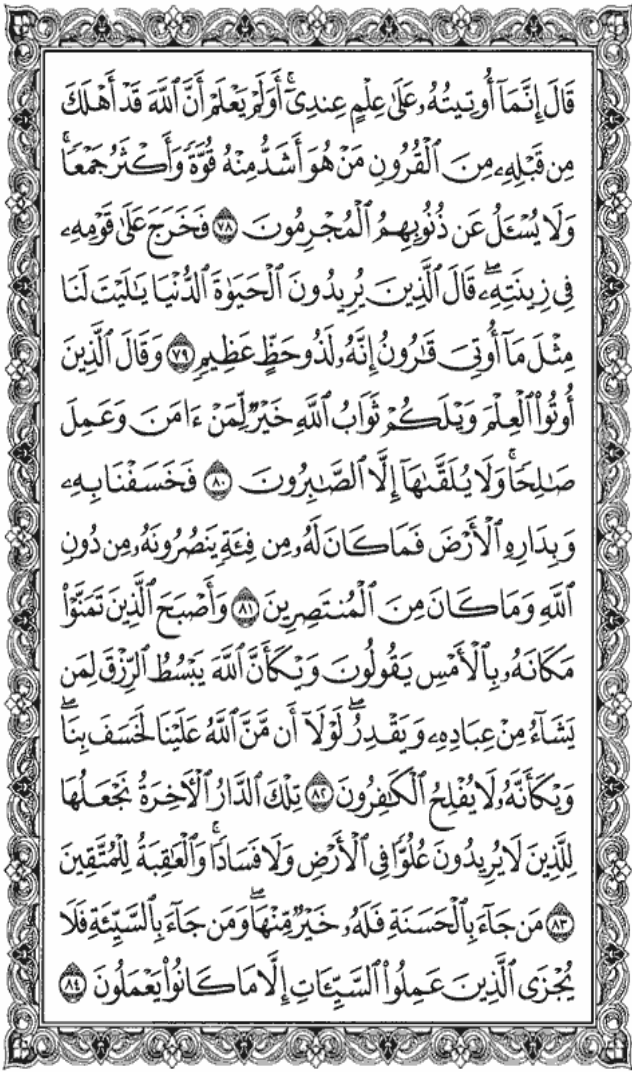 قَالَ إِنَّمَآ أُوتِيتُهُۥ عَلَىٰ عِلْمٍ عِندِىٓ ۚ أَوَلَمْ يَعْلَمْ أَنَّ ٱللَّهَ قَدْ أَهْلَكَ
مِن قَبْلِهِۦ مِنَ ٱلْقُرُونِ مَنْ هُوَ أَشَدُّ مِنْهُ قُوَّةً وَأَكْثَرُ جَمْعًا ۚ
وَلَا يُسْـَٔلُ عَن ذُنُوبِهِمُ ٱلْمُجْرِمُونَ ٧٨ فَخَرَجَ عَلَىٰ قَوْمِهِۦ
فِى زِينَتِهِۦ ۖ قَالَ ٱلَّذِينَ يُرِيدُونَ ٱلْحَيَوٰةَ ٱلدُّنْيَا يَـٰلَيْتَ لَنَا
مِثْلَ مَآ أُوتِىَ قَـٰرُونُ إِنَّهُۥ لَذُو حَظٍّ عَظِيمٍ ٧٩ وَقَالَ ٱلَّذِينَ
أُوتُوا۟ ٱلْعِلْمَ وَيْلَكُمْ ثَوَابُ ٱللَّهِ خَيْرٌ لِّمَنْ ءَامَنَ وَعَمِلَ
صَـٰلِحًا ۚ وَلَا يُلَقَّىٰهَآ إِلَّا ٱلصَّـٰبِرُونَ ٨٠ فَخَسَفْنَا بِهِۦ
وَبِدَارِهِ ٱلْأَرْضَ فَمَا كَانَ لَهُۥ مِن فِئَةٍ يَنصُرُونَهُۥ مِن دُونِ
ٱللَّهِ وَمَا كَانَ مِنَ ٱلْمُنتَصِرِينَ ٨١ وَأَصْبَحَ ٱلَّذِينَ تَمَنَّوْا۟
مَكَانَهُۥ بِٱلْأَمْسِ يَقُولُونَ وَيْكَأَنَّ ٱللَّهَ يَبْسُطُ ٱلرِّزْقَ لِمَن
يَشَآءُ مِنْ عِبَادِهِۦ وَيَقْدِرُ ۖ لَوْلَآ أَن مَّنَّ ٱللَّهُ عَلَيْنَا لَخَسَفَ بِنَا ۖ
وَيْكَأَنَّهُۥ لَا يُفْلِحُ ٱلْكَـٰفِرُونَ ٨٢ تِلْكَ ٱلدَّارُ ٱلْـَٔاخِرَةُ نَجْعَلُهَا
لِلَّذِينَ لَا يُرِيدُونَ عُلُوًّا فِى ٱلْأَرْضِ وَلَا فَسَادًا ۚ وَٱلْعَـٰقِبَةُ لِلْمُتَّقِينَ
٨٣ مَن جَآءَ بِٱلْحَسَنَةِ فَلَهُۥ خَيْرٌ مِّنْهَا ۖ وَمَن جَآءَ بِٱلسَّيِّئَةِ فَلَا
يُجْزَى ٱلَّذِينَ عَمِلُوا۟ ٱلسَّيِّـَٔاتِ إِلَّا مَا كَانُوا۟ يَعْمَلُونَ ٨٤